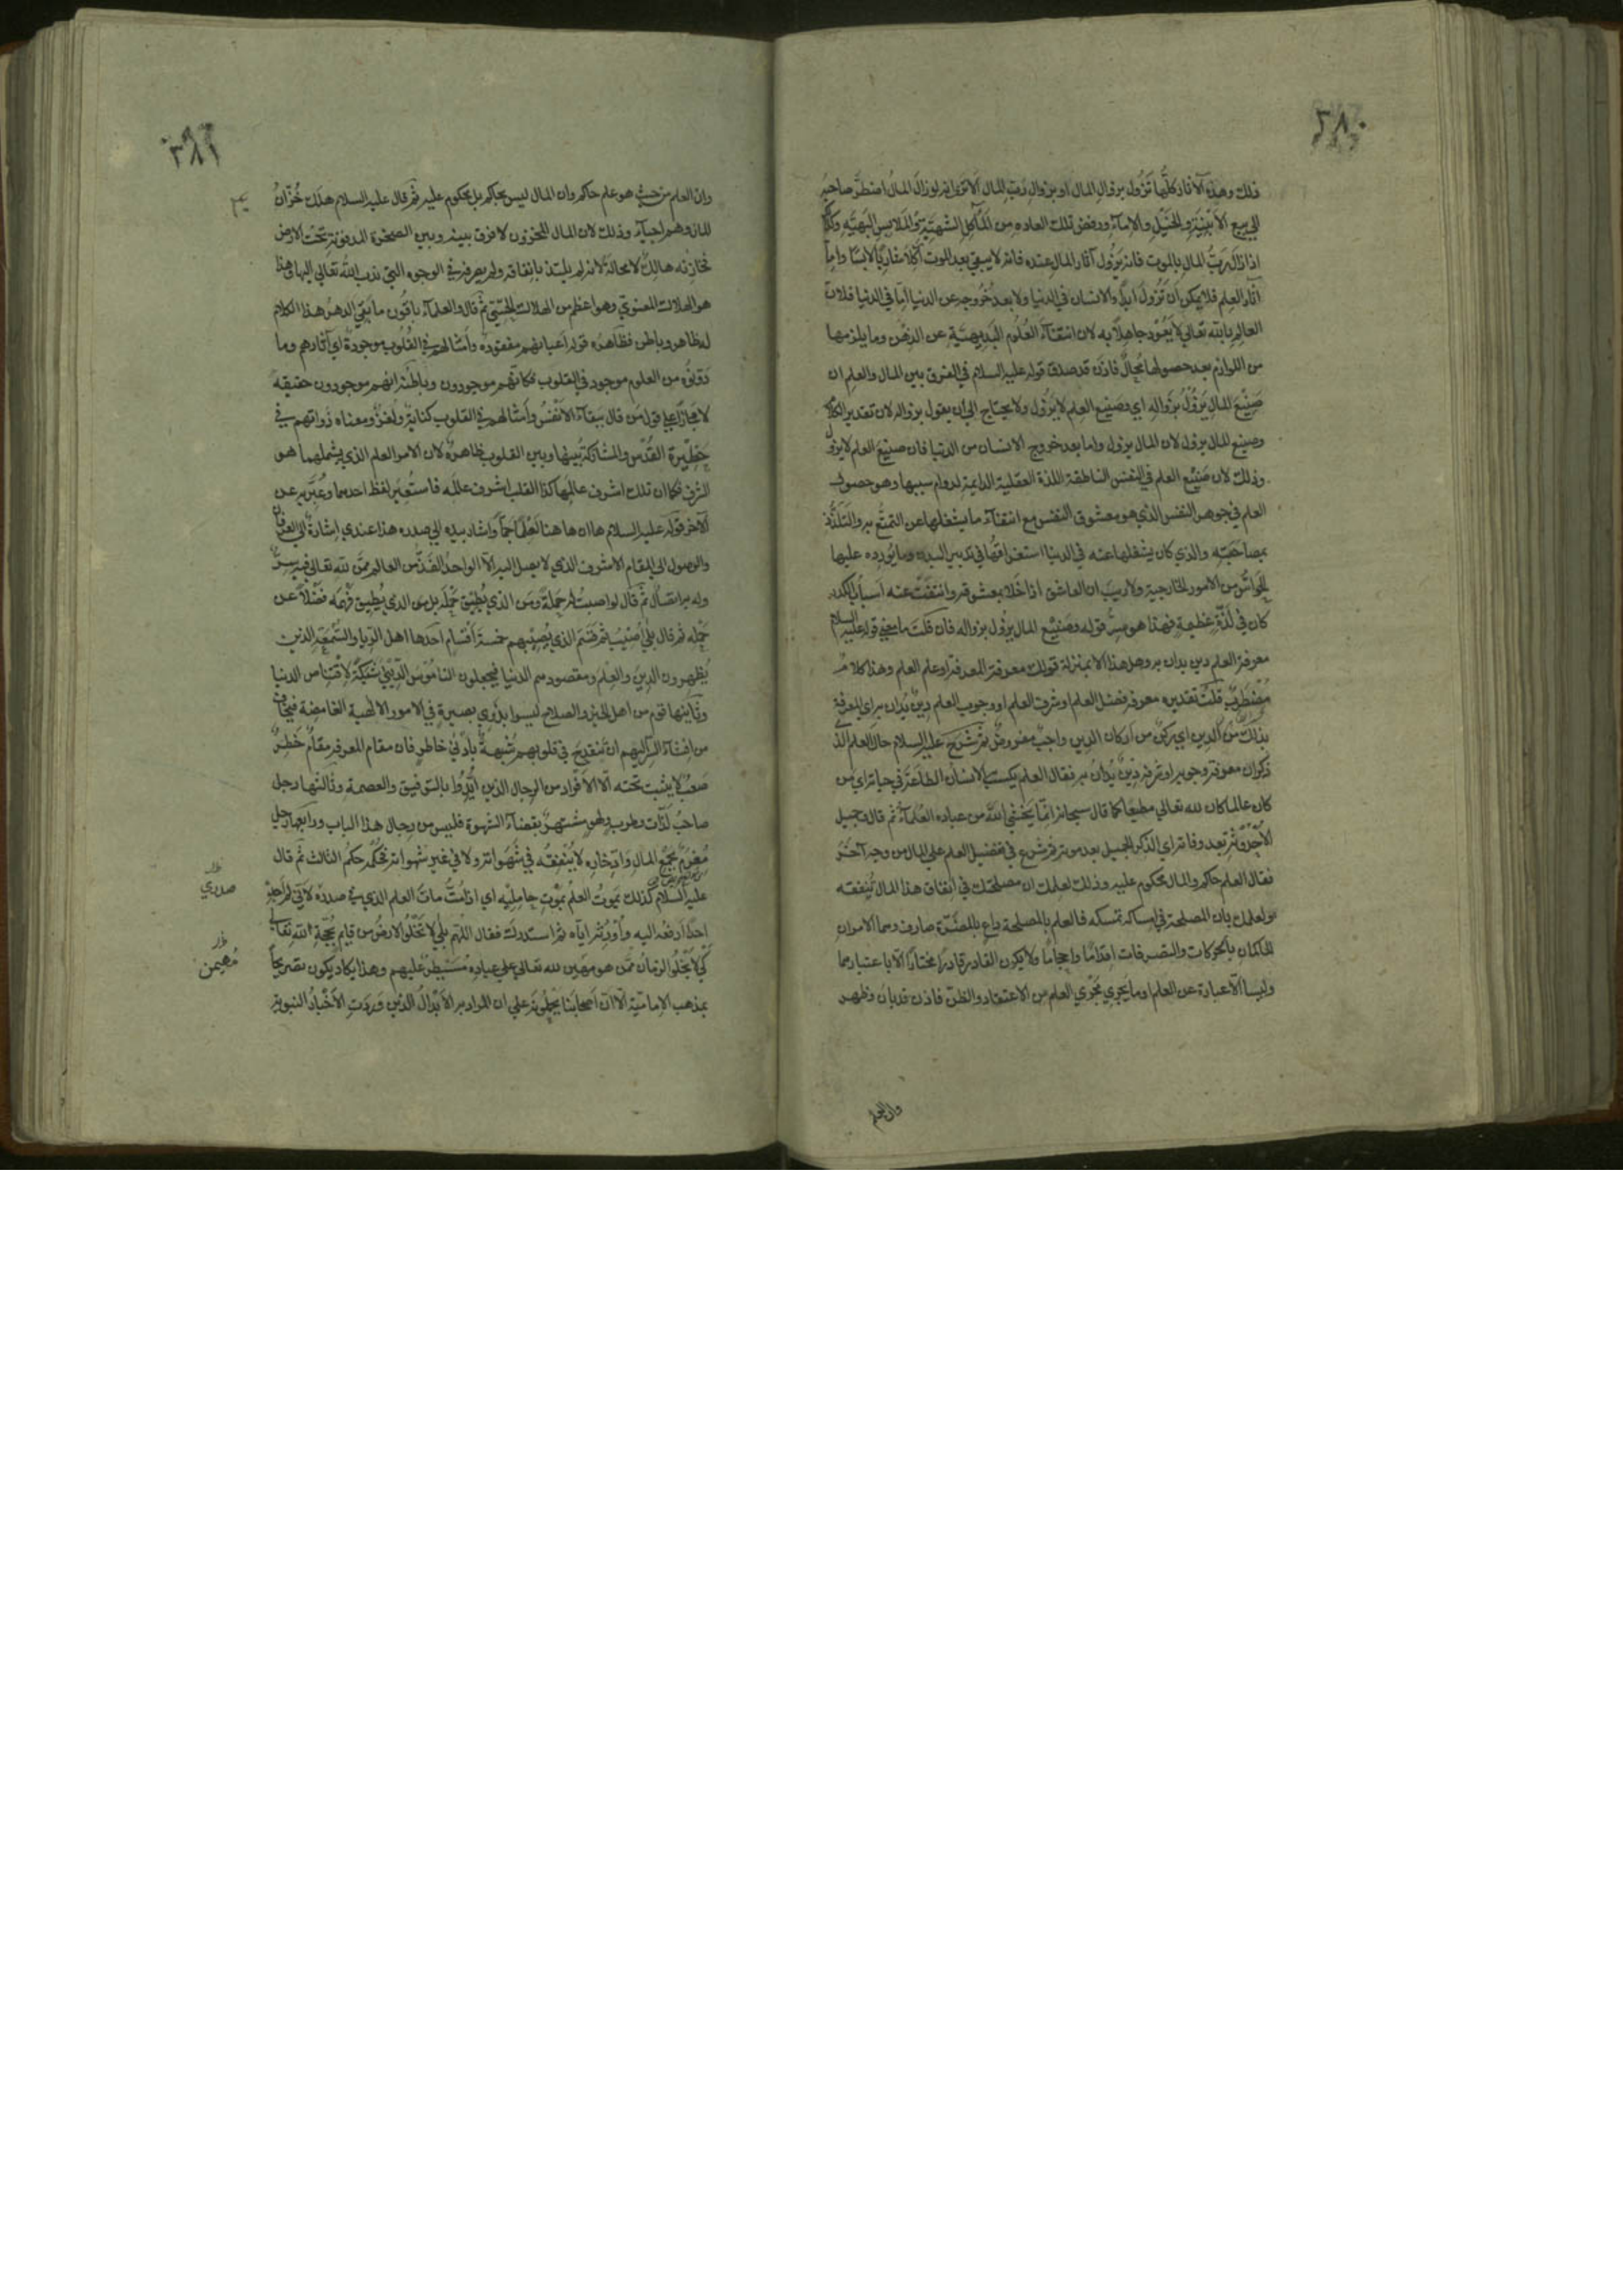 ٣٨٠
ذلك وهذه الآثار كلّها تَزُول بزوال المال او بزوال رَبّ المال الا ترى انه لو زال المالُ اضطرَّ صاحبُه
الى بيع الأبنِيَةِ والخَيْلِ والإماء ورفض تلك العاده من المَآكِلِ الشهيّة والملابِس البَهيّة وكذا
اذا زال رَبُّ المال بالموت فانه يَزُول آثار المال عنده فانه لا يبقى بعد الموت آكلا شاربًا لابسًا واما
آثار العلم فلا يمكن ان تَزُول ابدًا والانسان في الدنيا ولا بعد خُروجه عن الدنيا اما في الدنيا فلان
العالِم بالله تعالى لا يَعُود جاهلًا به لان انتفاءَ العُلُوم البَدِيهيَّة عن الذهن وما يلزمها
من اللوازم بعد حصولها مُحالٌ فاذن قد صدق قوله عليه السلام في الفرق بين المال والعلم ان
صَنِيْعَ المالِ يَزُوْلُ بزَواله اي وصنيع العلم لا يَزُول ولا يحتاج الى ان يقول بزواله لان تقدير الكلام
وصنيع المال يزول لان المال يزول واما بعد خروج الانسان من الدنيا فان صنيعَ العلم لا يزول
وذلك لان صَنِيْع العلم في النفس الناطقة اللذة العقلية الدايمة لدوام سببها وهو حصول
العلم في جوهر النفس الذي هو معشوق النفس مع انتفاء ما يشغلها عن التمتّع به والتَلذُّذ
بمصاحَبَتِه والذي كان يشغلها عنه في الدنيا استغراقُها في تدبير البدن وما يُورِده عليها
الحَواسُّ من الامور الخارجية ولا ريبَ ان العاشق اذا خَلا بمعشوقه وانتفَت عنه أسبابُ الكدر
كان في لَذّةٍ عظيمةٍ فهذا هو سِرُّ قوله وصَنِيْع المال يزُول بزواله فان قلتَ ما معنى قوله عليه السلام
معرفة العلم دين يدان به وهل هذا الا بمنزلة قولك معرفة المعرفة او علم العلم وهذا كلامٌ
مُضْطَرِبٌ قلتُ تقديره معرفة فضل العلم او شرف العلم او وجوب العلم دِينٌ يُدان به اي المعرفة
بذلك من الدين اي ركنٌ من أركان الدين واجبٌ مفروضٌ ثم شرحَ عليه السلام حال العلم الذي
ذكر ان معرفة وجوبه او شرفه دِينٌ يُدان به فقال العلم يكسب الانسان الطاعةَ في حياته اي من
كان عالما كان لله تعالى مطيعًا كما قال سبحانه انّما يَخْشَى اللهَ من عباده العُلماءُ ثم قال وجميل
الأُحْدُوْثةِ بعد وفاته اي الذكر الجميل بعد موته ثم شرع في تفضيل العلم على المال من وجه آخَر
فقال العلم حاكم والمال محكوم عليه وذلك لعلمك ان مصلحتك في انفاق هذا المال تُنفِقه
ولعلمك بان المصلحة في إمساكه تمسكه فالعلم بالمصلحة داعٍ وبالمَضَرّة صارف وهما الامران
الحاكمان بالحركات والتصرفات اقدامًا واحجامًا ولا يكون القادر قادرًا مختارًا الا باعتبارهما
وليسا الا عبارة عن العلم او ما يَجرِي مَجْرَى العلم من الاعتقاد والظنّ فاذن قد بان وظهر
وان العلم
٣٨١
وان العلم من حيث هو علم حاكم وان المال ليس بحاكم بل محكوم عليه ثم قال عليه السلام هلك خُزّانُ
المال وهم احياء وذلك لان المال المخزون لا فرق بينه وبين الصخرة المدفونة تحت الارض
فخازنه هالك لا محالة لانه لم يلتذ بانفاقه ولم يصرفه في الوجوه التي ندب الله تعالى اليها وهذا
هو الهلاك المعنويّ وهو اعظم من الهلاك الحِسّيّ ثم قال والعلماء باقُون ما بَقِي الدهرُ هذا الكلام
له ظاهر وباطن فظاهره قوله أعيانهم مفقوده وأمثالهم في القُلُوب موجودةٌ اي آثارهم وما
دوّنوه من العلوم موجود في القلوب فكانهم موجودون وباطنه انهم موجودون حقيقه
لا مجازًا على قول من قال ببقاء الانْفُس وأمثالهم في القلوب كناية ولُغز ومعناه ذواتهم في
حَظِيْرة القُدْس والمشاركة بينها وبين القلوب ظاهرةٌ لان الامر العلم الذي يشملهما هو
الشرف فكما ان تلك اشرف عالمها كذا القلب اشرف عالمه فاستُعير لفظ احدهما وعُبِّر به عن
الآخر قوله عليه السلام ها ان ها هنا لَعِلْمًا جَمًّا واشار بيده الى صدره هذا عندي إشارةٌ الى العرفان
والوصول الى المقام الاشرف الذي لا يصل اليه الا الواحدُ الفَذّ من العالم ممَّن لله تعالى فيه سِرٌّ
وله به اتصالٌ ثم قال لو اصبتُ له حملةً ومن الذي يُطِيْق حَمْلَه بل من الذي يُطِيق فَهْمَه فضلًا عن
حَمْلِه ثم قال بلى أُصِيْبُ ثم قسَّم الذي يُصِيْبُهم خمسة أقسام احدها اهل الرِّيا والسُّمْعة الذين
يُظهرون الدينَ والعِلْمَ ومقصودهم الدنيا فيجعلون الناموْس الدّينيَّ شَبَكةً لاقْتناص الدنيا
وثانيها قوم من اهل الخير والصلاح ليسوا بذَوِي بصيرةٍ في الامور الالهية الغامضة فيُخاف
من افشاء السِّر اليهم ان تَنْقدح في قلوبهم شُبهةٌ بأدنى خاطرٍ فان مقام المعرفة مقامٌ خَطِرٌ
صَعْبٌ لا يثبت تحته الا الأفراد من الرجال الذين أُيِّدُوا بالتوفيق والعصمة وثالثها رجل
صاحبُ لَذّات وطربٍ ولهوٍ مشتهرٌ بقضاء الشهوة فليس من رجال هذا الباب ورابعها رجل
مُغْرَمٌ بجمْعِ المال وادّخاره لا يُنْفِقُه في شَهَواته ولا في غير شهواته فحُكمُه حكمُ الثالث ثم قال
عليه السلام كذلك يَموتُ العلمُ بمَوْتِ حامِلِيْه اي اذا مُتُّ ماتَ العلم الذي في صدره لاني لم أَجِد
احدًا أدفعُه اليه وأُوْرِثُه ايّاه ثم استدرك فقال اللهم بلى لا تَخْلُو الارضُ من قايم بحُجّة الله تعالى
كي لا يَخْلُوَ الزمانُ ممّن هو مهيمن لله تعالى على عباده مُسَيْطِرٌ عليهم وهذا يكاد يكون تصريحًا
بمذهب الإماميّة الا ان أصحابنا يَحْمِلُونه على ان المراد به الأَبْدال الذين وَرَدَتِ الأَخْبارُ النبوية
صدري
مُهيمن